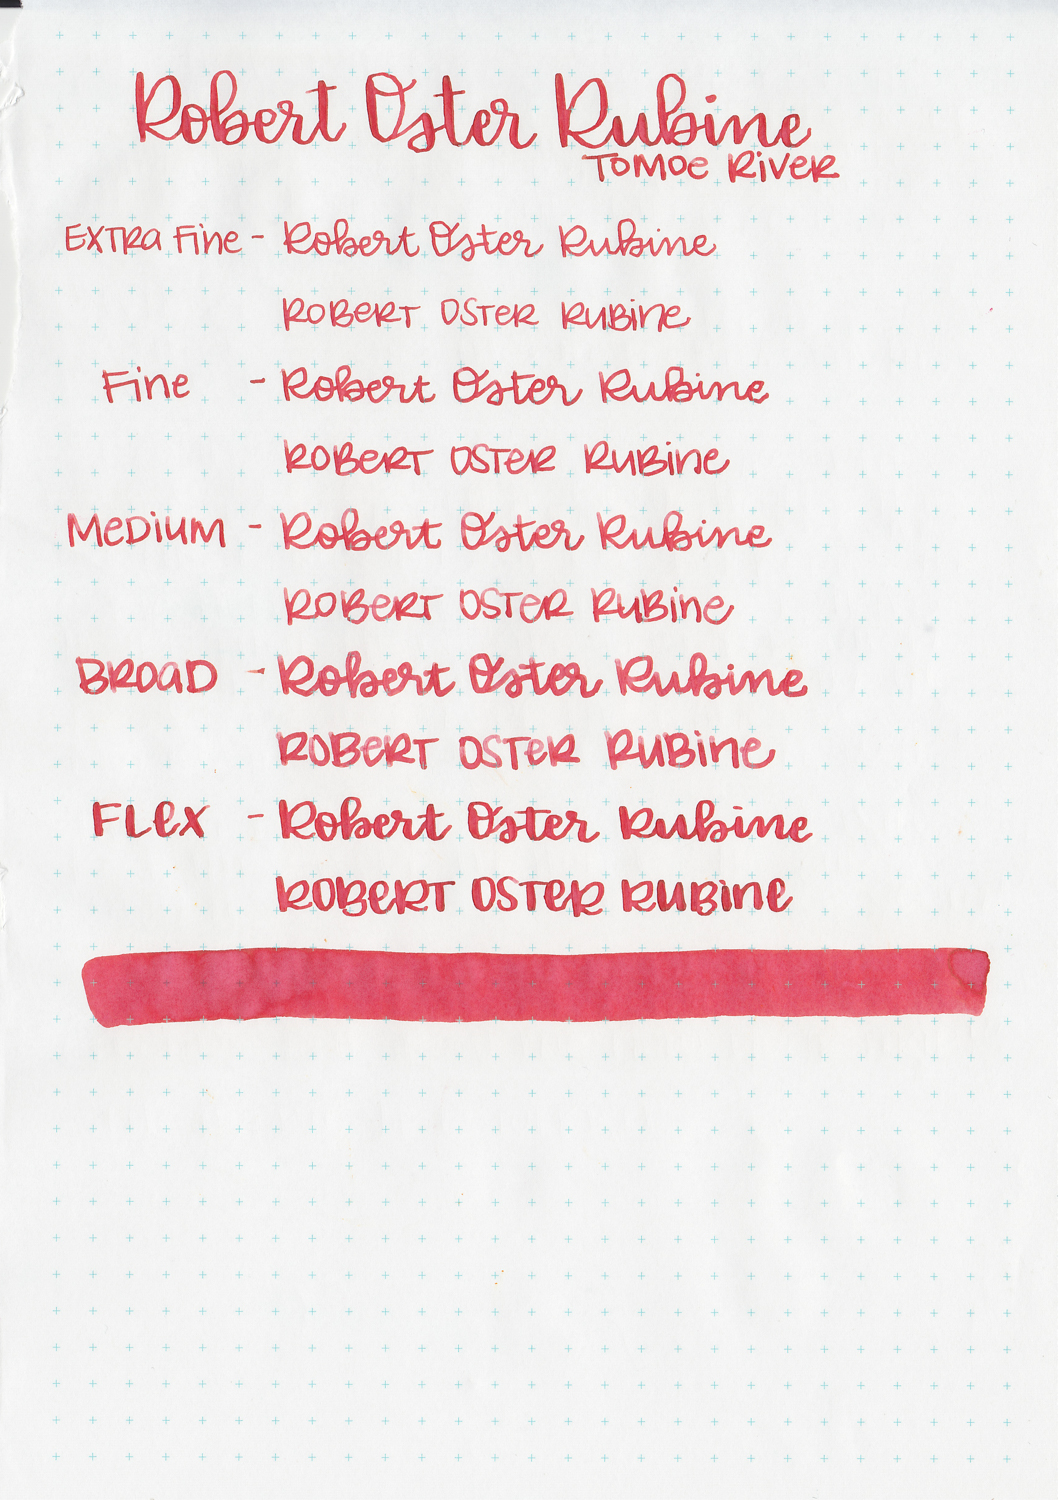 Robert Oster Rubine
Tomoe River
Extra Fine - Robert Oster Rubine
Robert Oster Rubine
Fine - Robert Oster Rubine
Robert Oster Rubine
Medium - Robert Oster Rubine
Robert Oster Rubine
Broad - Robert Oster Rubine
Robert Oster Rubine
Flex - Robert Oster Rubine
Robert Oster Rubine